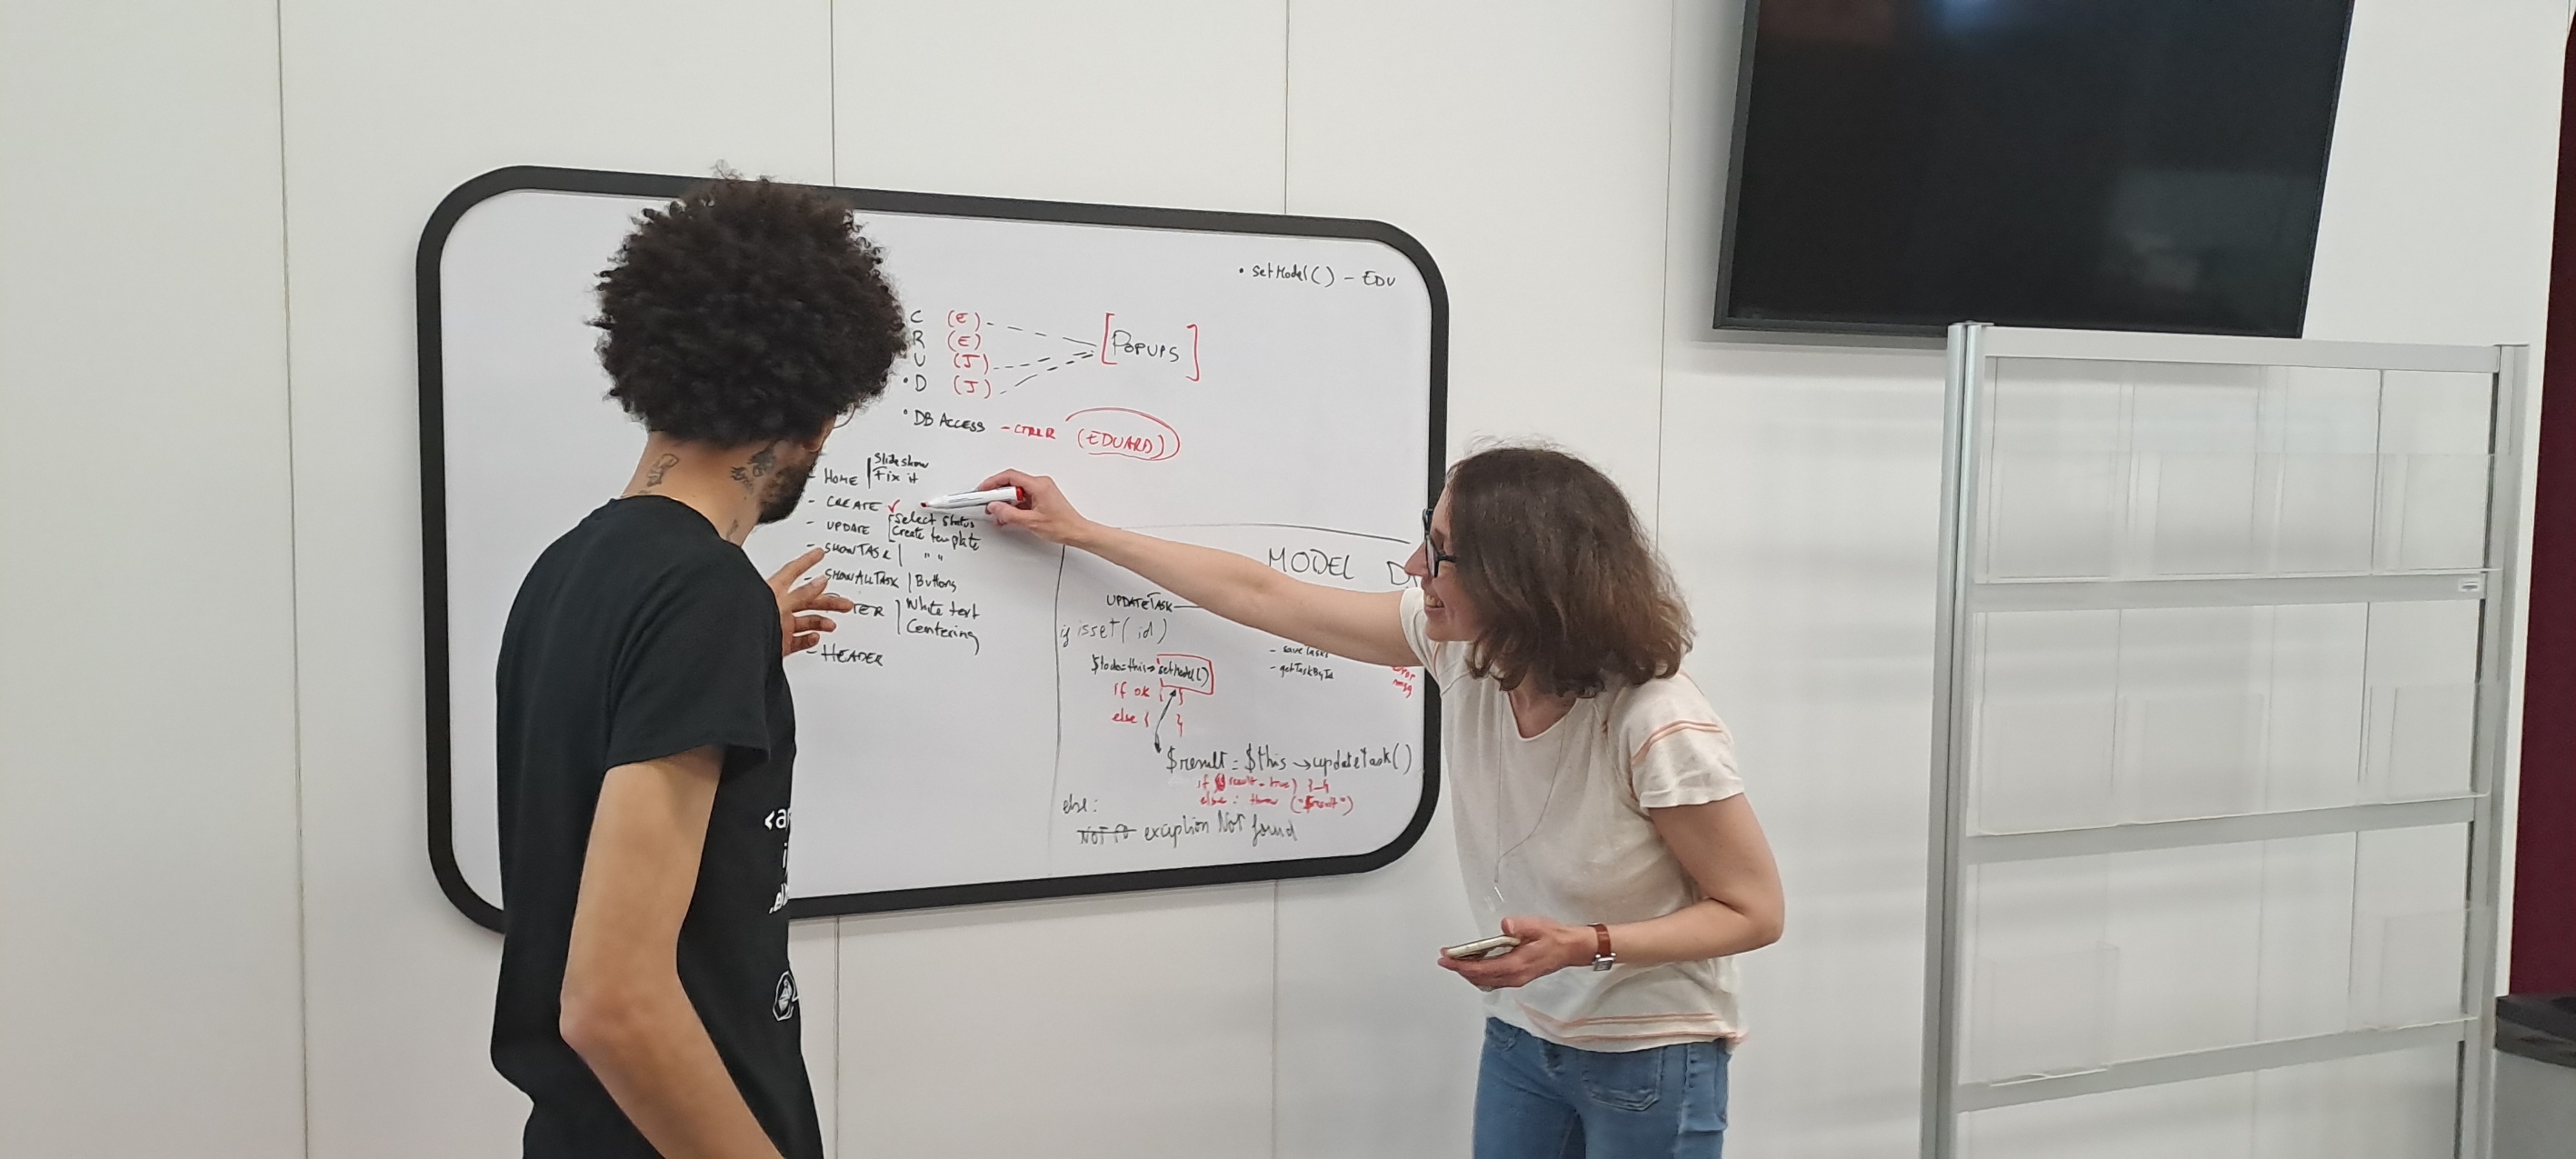 • setModel() - EDU
C (E)
R (E)
U (J)
• D (J)
[POPUPS]
• DB ACCESS - CTRLR (EDUARD)
- HOME | Slideshow
Fix it
- CREATE ✓
- UPDATE [Select status
Create template
- SHOWTASK | " "
- SHOWALLTASK | Buttons
| White text
Centering
- HEADER
MODEL
UPDATETASK
if isset(id)
$todo=this→setModel()
if ok { }
else { }
$result = $this →updateTask()
else:
exception Not found
- getTaskById
error
msg